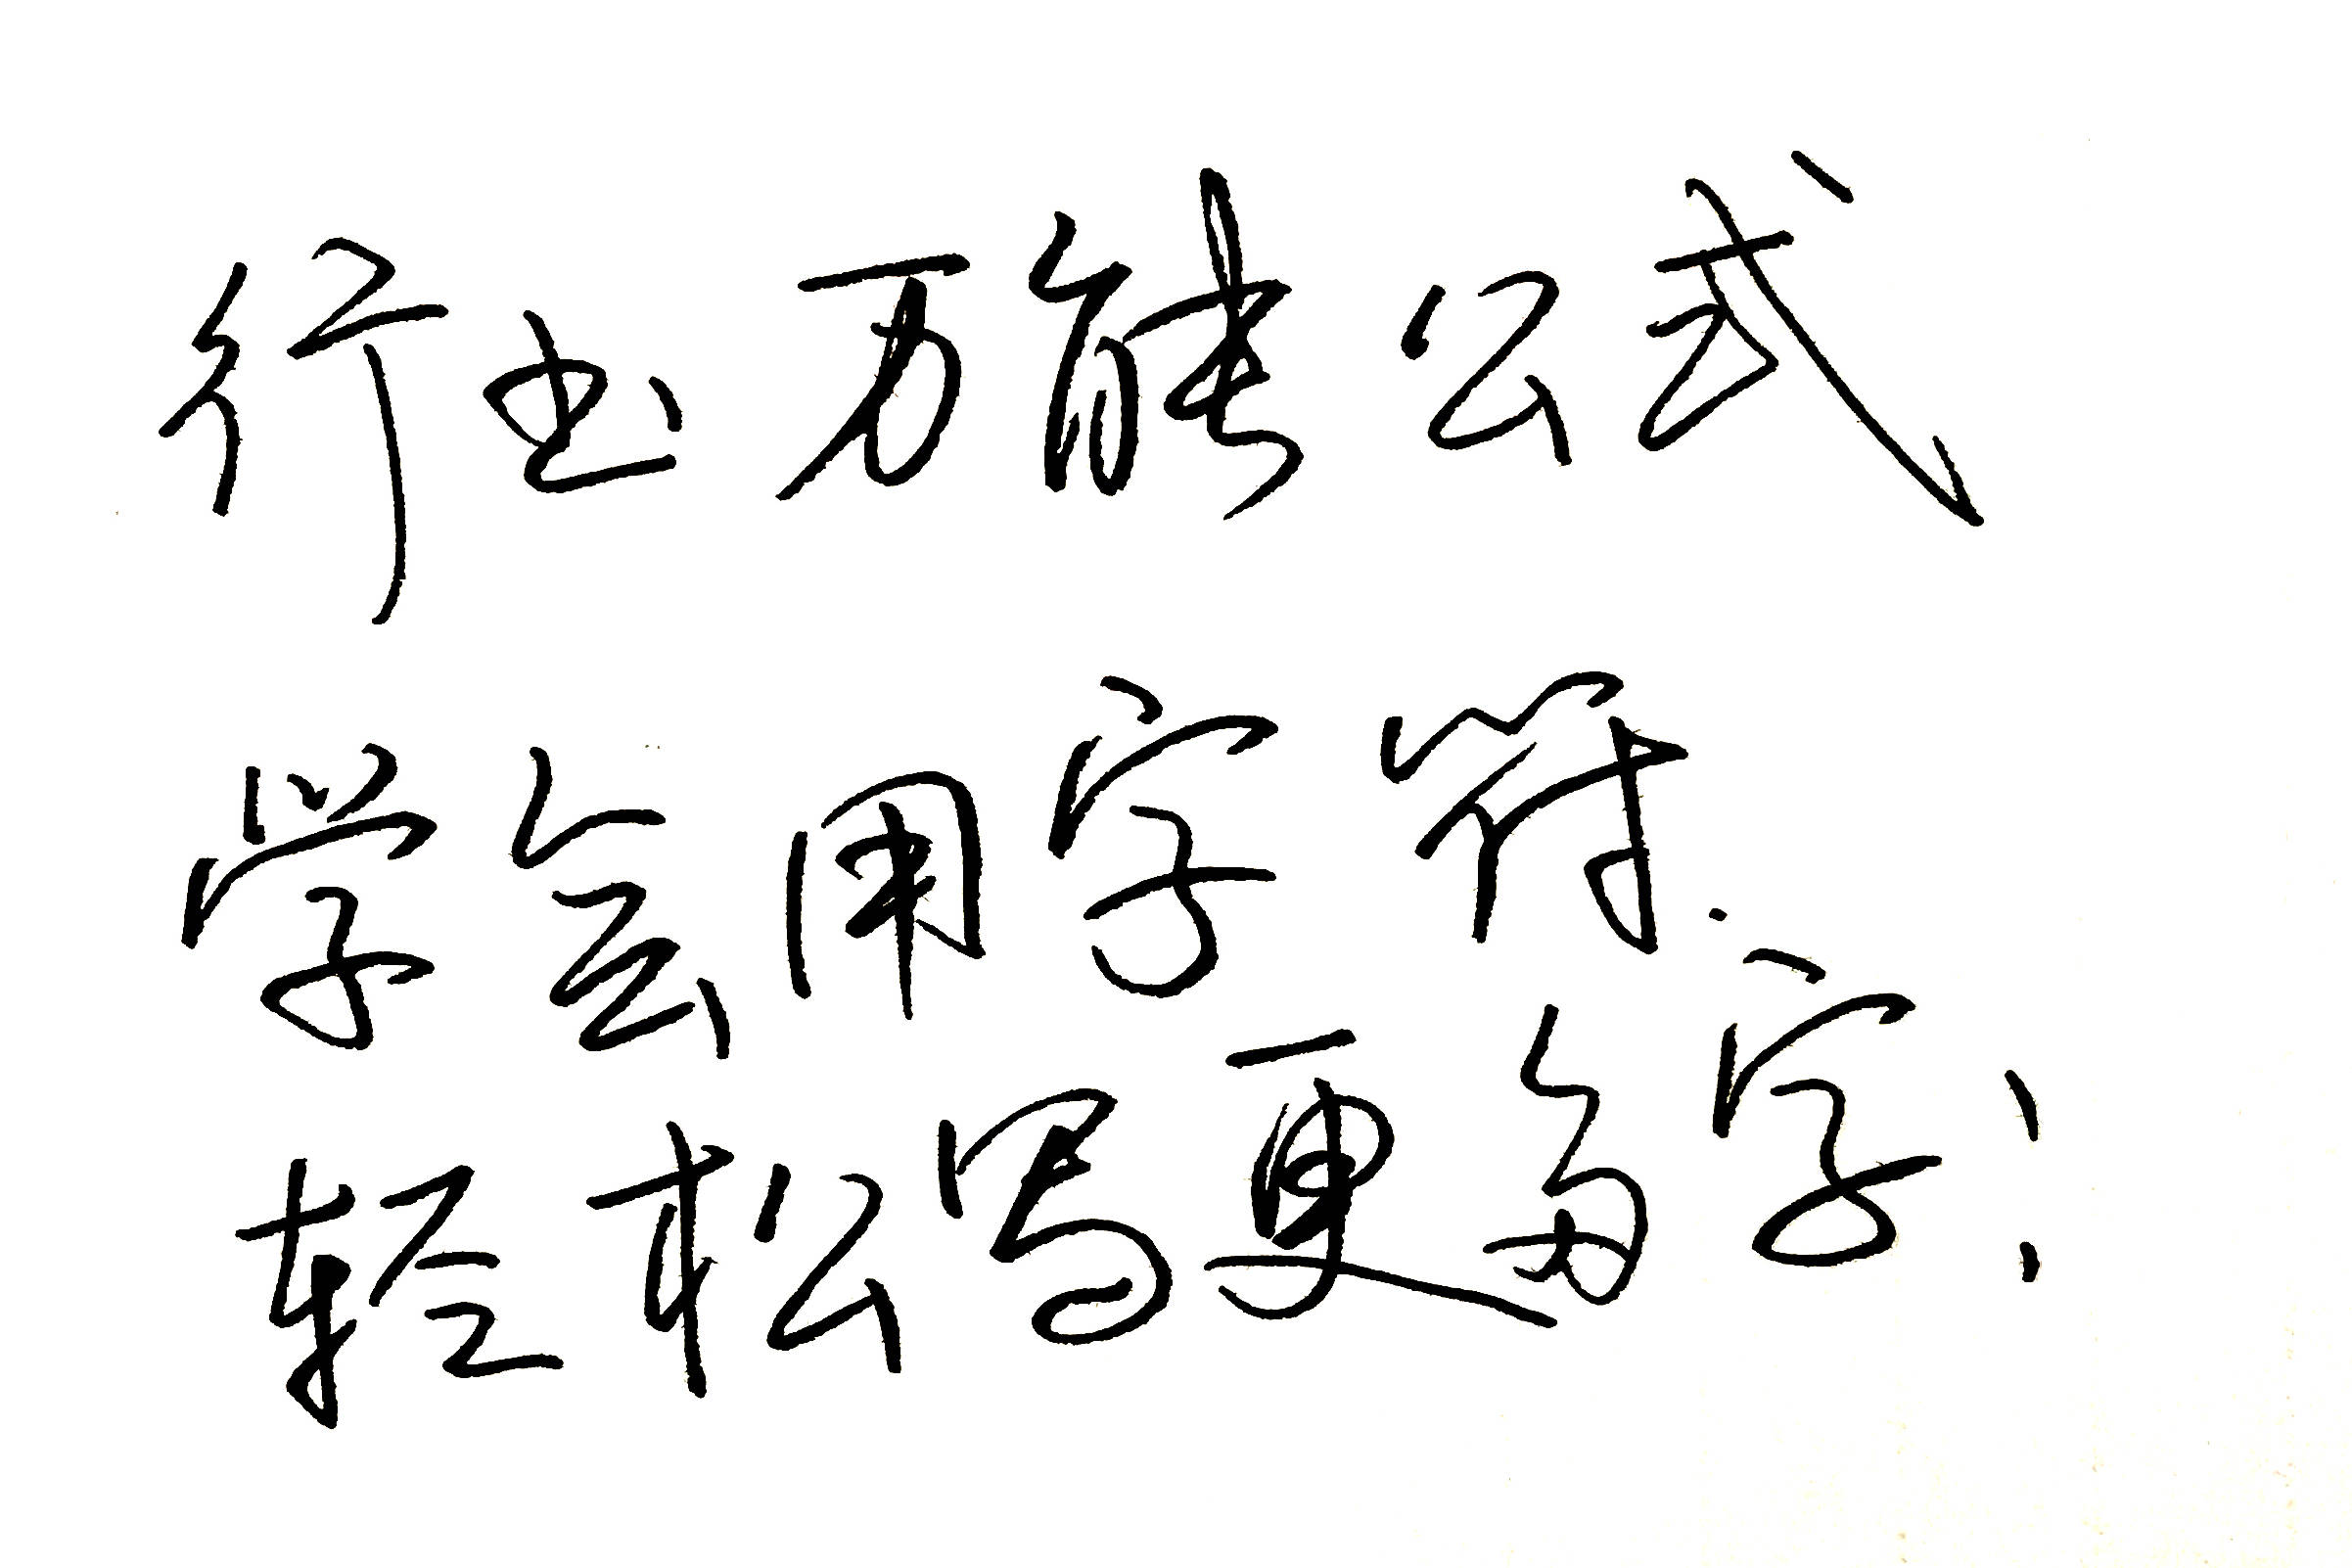 行书万能公式、
学会用字符.
轻松写更多字!